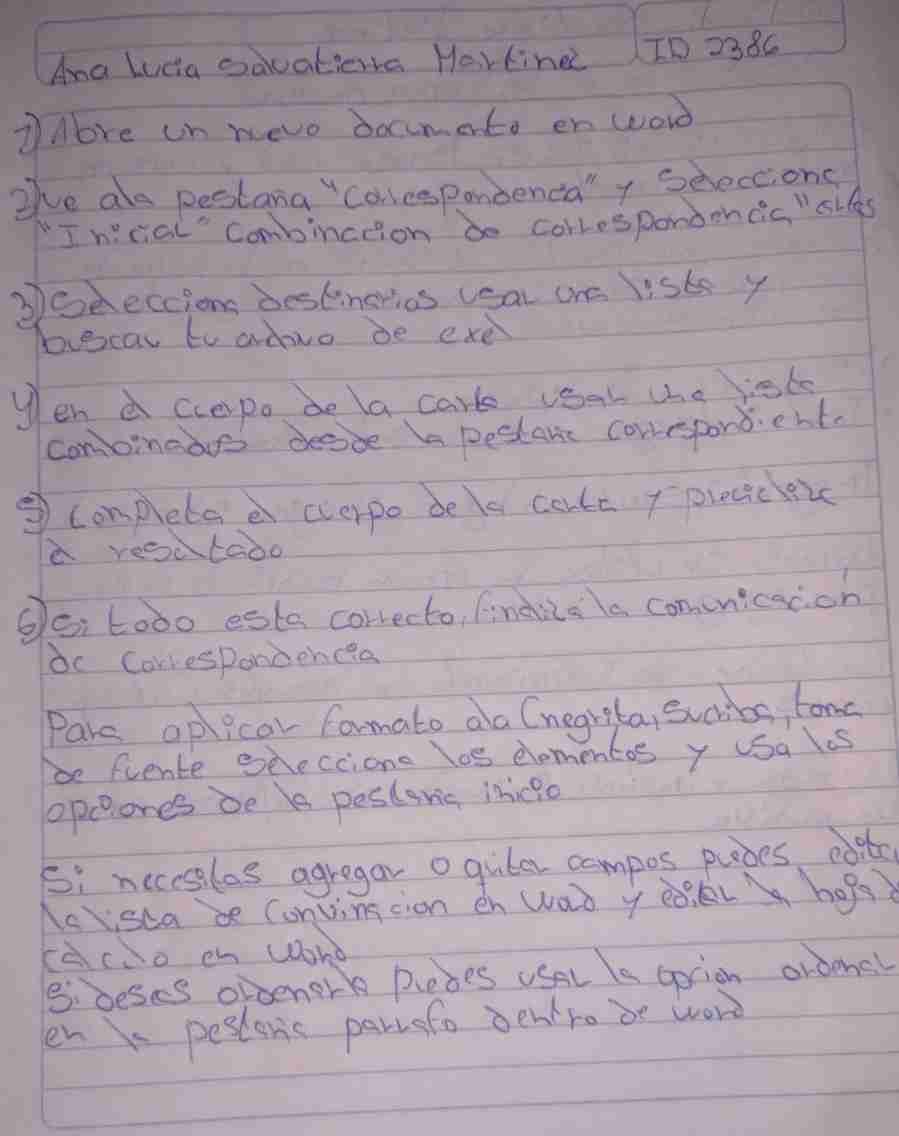 Ana Lucia Salvatierra Martinez ID 2386
1) Abre un nuevo documento en word
2) ve ala pestaña "Correspondencia" y Selecciona
"Inicial" Combinacion de correspondencia"
3) Selecciona destinarios usar una lista y
buscar tu de exel
4) en el cuerpo de la carta usar una lista
combinados desde la pestaña correspondiente
5) Completa el cuerpo de la carta y
el resultado
6) Si todo esta correcto, la comunicación
de Correspondencia
Para aplicar formato ala (negrita, tama
de fuente Selecciona los elementos y usa las
opciones de la pestaña inicio
Si necesitas agregar o quitar campos puedes edita
la lista de Convinacion en Word y editar la hoja d
calculo en Word
Si deseas ordenarla Puedes usar la opcion ordenar
en la pestaña parrafo dentro de word